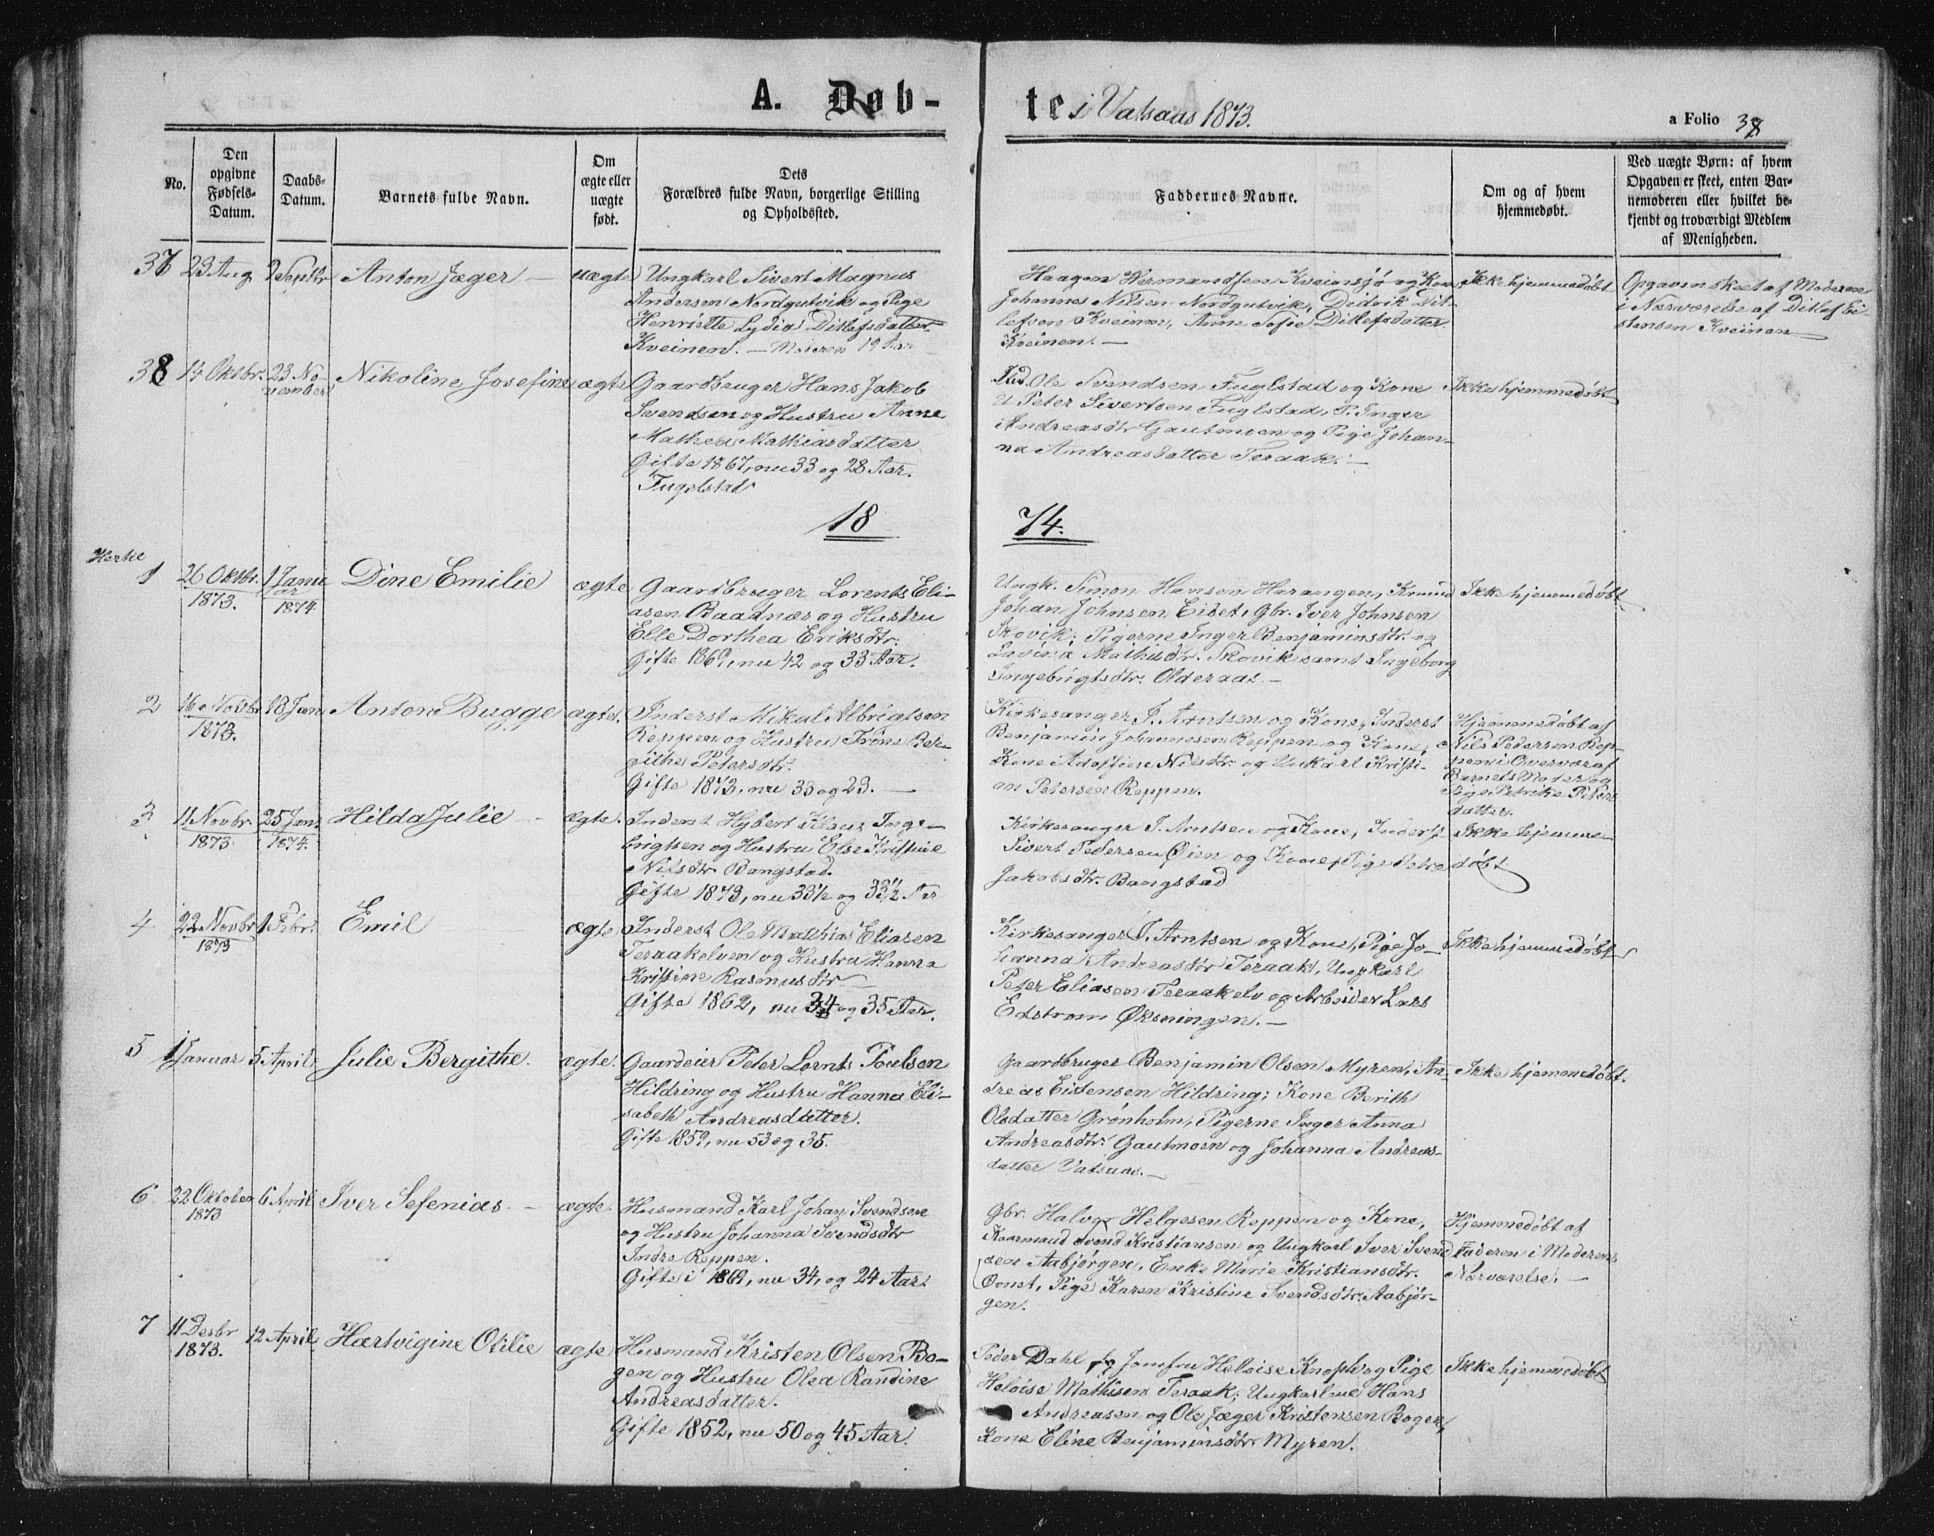 A. Døb-
te i Vatsaas 1873.
a Folio 38
No.
Den
opgivne
Fødsels-
Datum.
Daabs-
Datum.
Barnets fulde Navn.
Om
ægte eller
uægte
født.
Dets
Forældres fulde Navn, borgerlige Stilling
og Opholdssted.
Faddernes Navne.
Om og af hvem
hjemmedøbt.
Ved uægte Børn: af hvem
Opgaven er skeet, enten Bar-
nemoderen eller hvilket be-
kjendt og troværdigt Medlem
af Menigheden.
37 23 Aug 2 Septbr Anton Jæger — uægte
Ungkarl Sivert Magnus
Andersen Nordgutvik og Pige
Henriette Lydia Ditlefsdatter
Kveinen. — Moderen 19 Aar
Haagen Hermandsen Kveinsjø og Kone
Johannes Nilsen Nordgutvik, Didrik Dit-
lefsen Kveinen, Anne Sofie Ditlefsdatter
Kveinen. —
Ikke hjemmedøbt
Opgaven skeet af Moderen
i Nærværelse af Ditlef
Kveinen
38 14 Oktbr. 23 No-
vember
Nikoline Josefine ægte
Gaardbruger Hans Jakob
Svendsen og Hustru Anne
Mathea Mathiasdatter
Gifte 1867, nu 33 og 28 Aar.
Fugelstad
Ole Svendsen Fuglstad og Kone
U Peter Sivertsen Fuglstad, P. Inger
Andreasdtr Gautmoen og Pige Johan-
na Andreasdatter Teraak. —
Ikke hjemmedøbt
18 74.
1 26 Oktbr.
1873.
1 Janu
ar
1874
Dine Emilie ægte
Gaardbruger Lorents Eli-
asen Baadnæs og Hustru
Elle Dorthea Eriksdtr.
Gifte 1869, nu 42 og 33 Aar.
Ungk. Simon Hansen Harangen, Kmand
Johan Johnsen Eidet, Gbr. Iver Johnsen
Skovik, Pigerne Inger Benjaminsdtr. og
Lavina Mathisdtr. Skovik samt Ingeborg
Ingebrigtsdtr. Olderaas. —
Ikke hjemmedøbt
2 16 Novbr
1873.
18 Jan Anton Bugge ægte.
Inderst Mikal Albrigtsen
Reppen og Hustru Trine Ber-
githe Petersdtr.
Gifte 1873, nu 33 og 23. —
Kirkesanger J. Arntsen og Kone, Inderst
Benjamin Johannesen Reppen og Kone,
Kone Adolfine Nilsdtr. og Unkarl Kristi-
an Petersen Reppen.
Hjemmedøbt af
Nils Pedersen Rep-
pen i Overvær af
Barnets Moder og
Pige Petrike Peters
datter.
3 11 Novbr.
1873.
25 Jan
1874.
Hilda Julie — ægte.
Inderst Hybert Klaus Inge-
brigtsen og Hustru Olse Kristine
Nilsdtr. Bangstad.
Gifte 1873, nu 33½ og 33½ Aar
Kirkesanger J. Arntsen og Kone, Inderst
Sivert Pedersen Øien og Kone, Pige Petra
Jakobsdtr. Bangstad
Ikke hjemme-
døbt
4 22 Novbr
1873
1 Febr. Emil ægte
Inderst Ole Mathias Eliasen
Teraakelven og Hustru Hanna
Kristine Rasmusdtr —
Gifte 1862, nu 34 og 35 Aar.
Kirkesanger J. Arntsen og Kone, Pige Jo-
hanna Andreasdtr Teraak, Ungkarl
Peter Eliasen Teraakelv og Arbeider Lars
Edstrøm Øksningen. —
Ikke hjemmedøbt
5 1 Januar 5 April Julie Bergithe. ægte.
Gaardeier Peter Lornts Poulsen
Hildring og Hustru Hanna Eli-
sabeth Andreasdatter.
Gifte 1859, nu 53 og 35.
Gaardbruger Benjamin Olsen Myren, An-
dreas Eidensen Hildring; Kone Berith
Olsdatter Grønholm, Pigerne Inger Anna
Andreasdtr. Gautmoen og Johanna Andreas-
datter Vatsaas. —
Ikke hjemmedøbt.
6 22 Oktober
1873
6 April Iver Sefenias — ægte.
Husmand Karl Johan Svendsen
og Hustru Johanna Svendsdtr
Indre Reppen.
Gifte i 1869, nu 34, og 24 Aar
Gbr. Halvor Helgesen Reppen og Kone,
Kaarmand Svend Kristiansen og Ungkarl Iver Svend
sen Aabjørgen, Enke Marie Kristiansdtr.
Ovnet, Pige Karen Kristine Svendsdtr. Aabjør-
gen.
Hjemmedøbt af
Faderen i Moderens
Nærværelse. —
7 11 Desbr
1873.
12 April Hartvigine Otilie ægte
Husmand Kristen Olsen Bo-
gen og Hustru Olea Randine
Andreasdatter.
Gifte 1852, nu 50 og 45 Aar.
Peder Dahl og Jomfru Heloise Knoph og Pige
Heloise Mathisen Teraak; Ungkarlene Hans
Andreasen og Ole Jæger Kristensen Bogen,
Kone Eline Benjaminsdtr. Myren.
Ikke hjemmedøbt